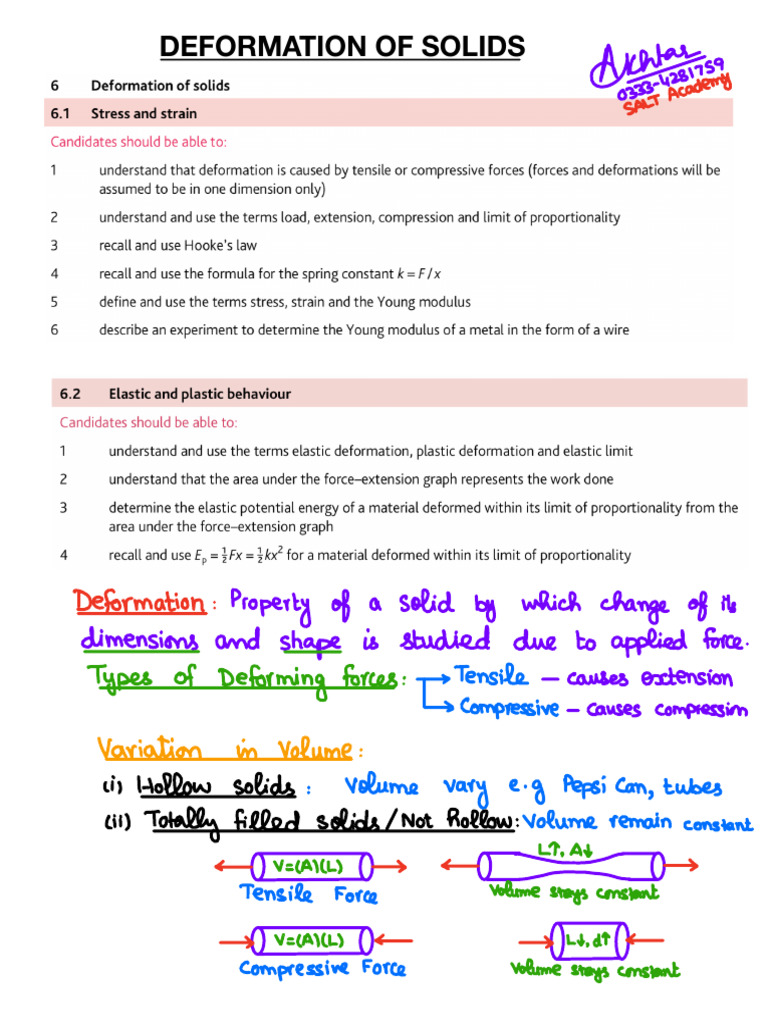 DEFORMATION OF SOLIDS
Akhtar
0333-4281759
SALT Academy
6 Deformation of solids
6.1 Stress and strain
Candidates should be able to:
1 understand that deformation is caused by tensile or compressive forces (forces and deformations will be
assumed to be in one dimension only)
2 understand and use the terms load, extension, compression and limit of proportionality
3 recall and use Hooke's law
4 recall and use the formula for the spring constant k = F / x
5 define and use the terms stress, strain and the Young modulus
6 describe an experiment to determine the Young modulus of a metal in the form of a wire
6.2 Elastic and plastic behaviour
Candidates should be able to:
1 understand and use the terms elastic deformation, plastic deformation and elastic limit
2 understand that the area under the force–extension graph represents the work done
3 determine the elastic potential energy of a material deformed within its limit of proportionality from the
area under the force–extension graph
4 recall and use Eₚ = ½Fx = ½kx² for a material deformed within its limit of proportionality
Deformation : Property of a solid by which change of its
dimensions and shape is studied due to applied force.
Types of Deforming forces: → Tensile – causes extension
→ Compressive – causes compression
Variation in Volume :
(i) Hollow solids : Volume vary e.g Pepsi Can, tubes
(ii) Totally filled solids/Not Hollow: Volume remain constant
V=(A)(L) L↑, A↓
Tensile Force Volume stays constant
V=(A)(L) L↓, d↑
Compressive Force Volume stays constant